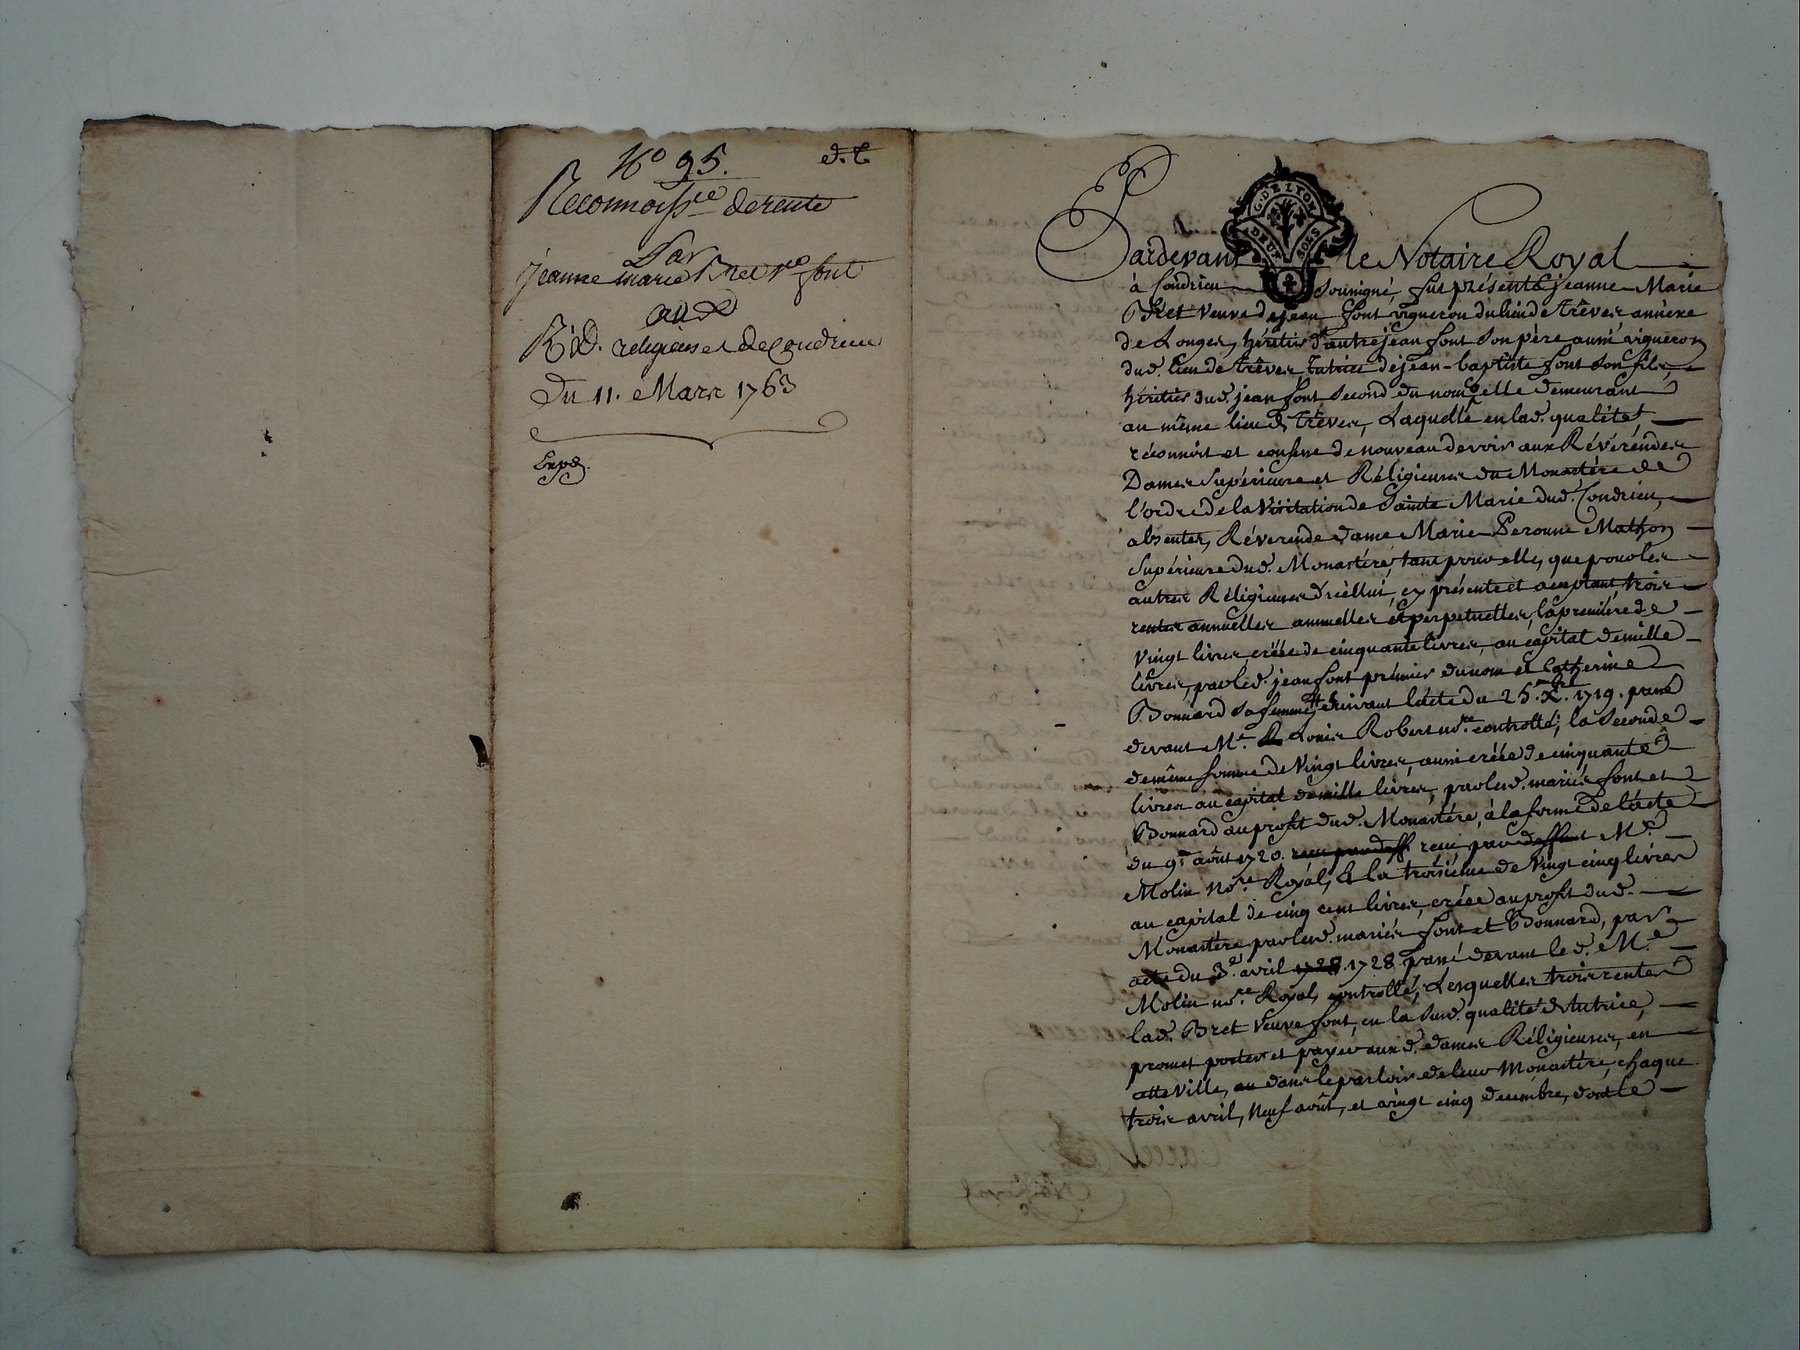 N.º 95.
d. t.
Reconnoiss.ce de rente
Par
jeanne marie Bret v.e font
aux
R.des D. religieuses de Condrieu
Du 11. Mars 1763
Exp.
G. DE LYON
DEUX SOLS
Pardevant le Notaire Royal
à Condrieu soussigné, fut présente jeanne Marie
Bret veuve de jean font vigneron du lieu de Trêves annèxe
de Longes, héritier d'autre jean font son père aussi vigneron
dud. lieu de Trêves, tutrice de jean-baptiste font son fils,
héritier dud. jean font second du nom, elle demeurant
au même lieu de Trêves, Laquelle en lad. qualité,
réconnoit et confesse de nouveau devoir aux Révérendes
Dames Supérieure et Réligieuses du Monastère de
l'ordre de la Visitation de Sainte Marie dud. Condrieu,
absentes, Réverende dame Marie Peronne Mathon
Supérieure dud. Monastère, tant pour elle, que pour les
autres Réligieuses d'icèlluy, cy présente et acceptant, trois
rentes annuelles annuelles et perpetuelles, la première de
vingt livres, créée de cinquante livres, au capital de mille
livres, par led. jean font prémier du nom et Catherine
Bonnard sa femme, suivant l'acte du 25. Xbre. 1719. passé
devant M.e Louis Robert no.re controllé; la seconde
de même somme de vingt livres, aussi créée de cinquante
livres au capital de mille livres, par lesd. mariés font et
Bonnard au profit dud. Monastère, à la forme de l'acte
du 9.e août 1720. recu par deff. recu par deffunt M.e
Molin no.re Royal, & la troisième de vingt cinq livres
au capital de cinq cent livres, créée au profit dud.
Monastère par lesd. mariés font et Bonnard, par
acte du 3.e avril 1728. 1728. passé devant led. M.e
Molin no.re Royal, controllé, Lesquelles trois rentes
lad. Bret veuve font, en la susd. qualité de tutrice,
promet porter et payer auxd. dames Réligieuses, en
cette Ville, au dans le parloir de leur Monastère, chaque
trois avril, neuf août, et vingt cinq decembre, dont le